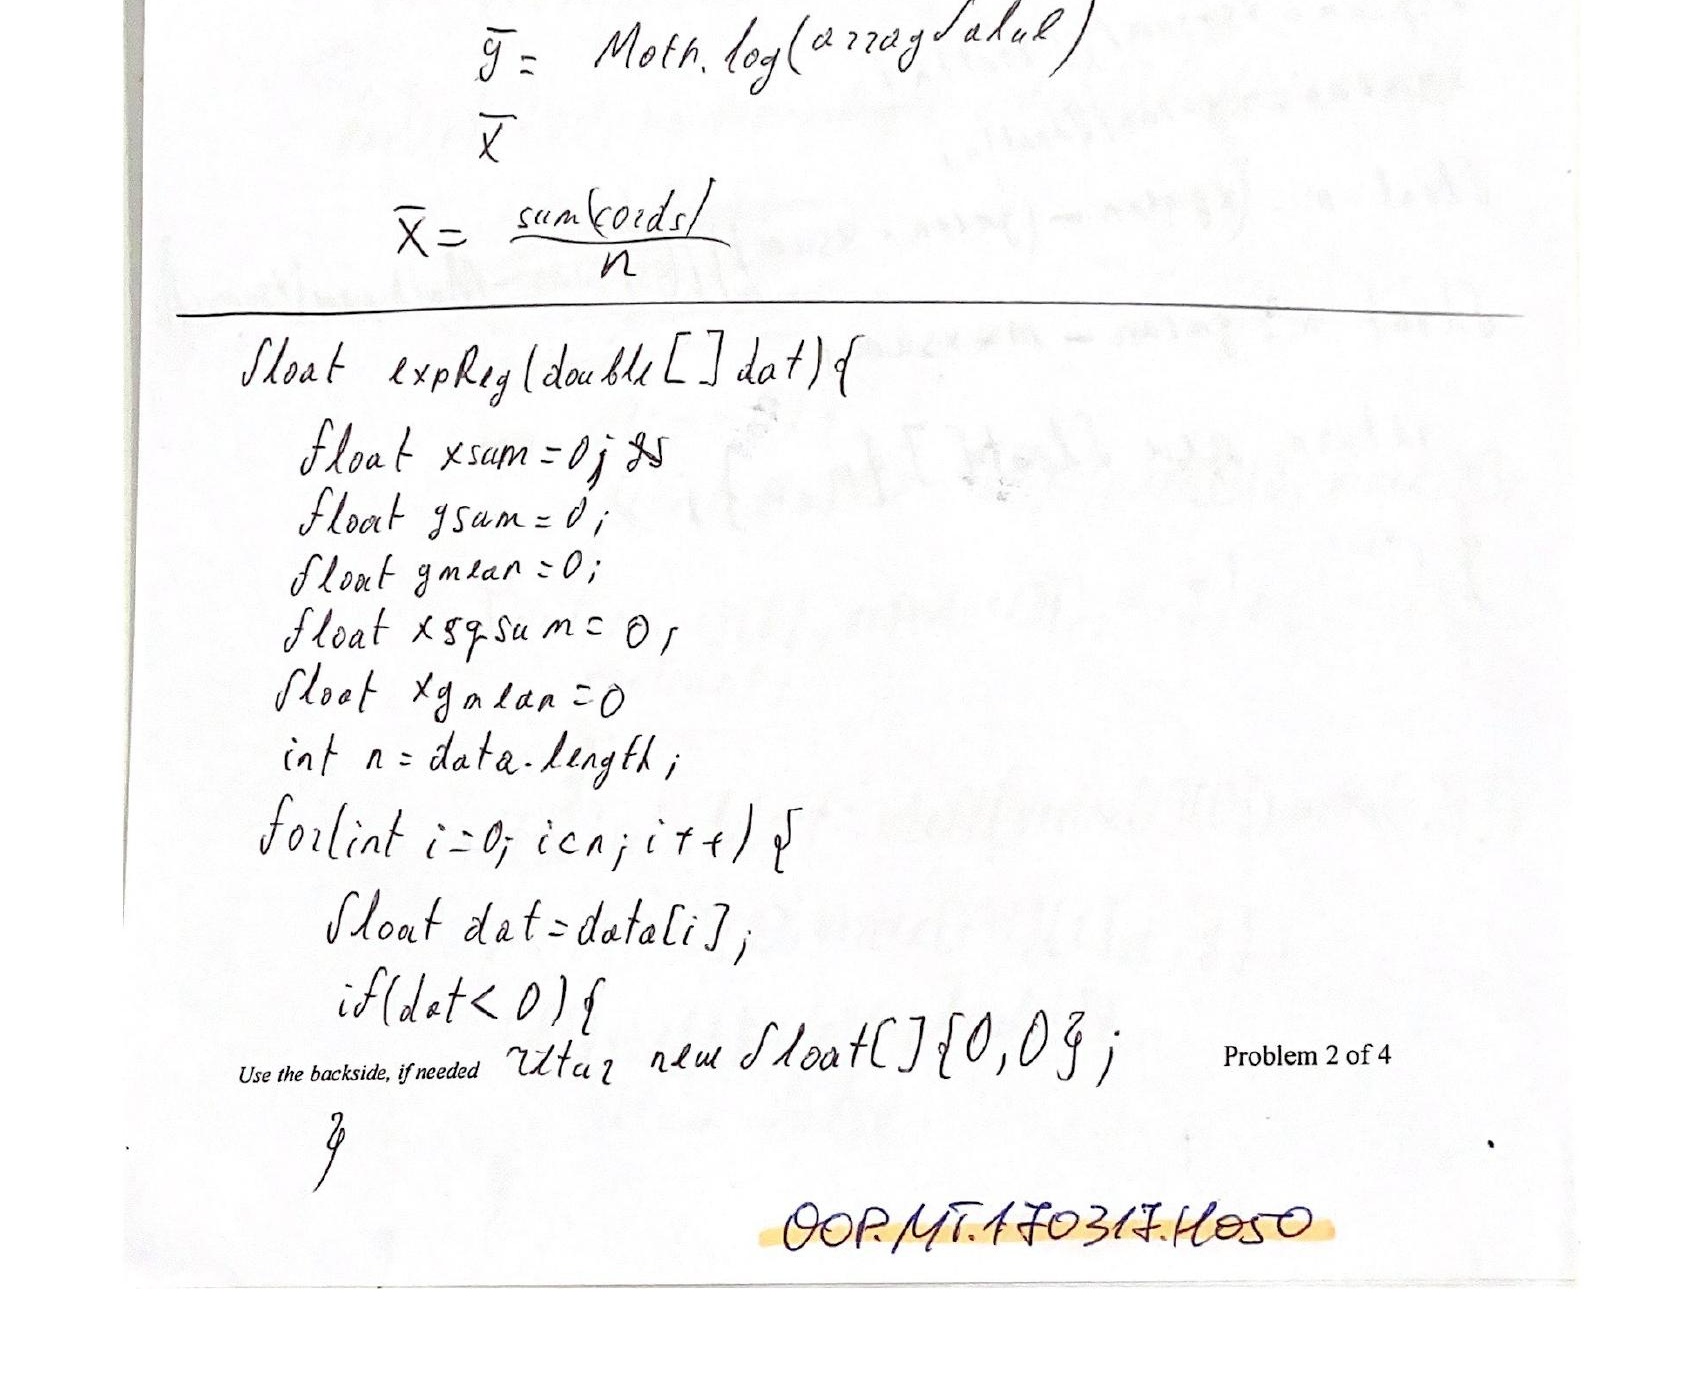 ȳ = Math.log(arrayValue)
x̄
x̄ = sum(cords)
n
float expReg(double[] dat){
float xsum=0;
float ysum=0;
float ymean=0;
float xsqsum=0;
float xymean=0
int n=data.length;
for(int i=0; i<n; i++){
float dat=data[i];
if(dat<0){
Use the backside, if needed retur new float[]{0,0}; Problem 2 of 4
}
OOP.MT.170317.H050